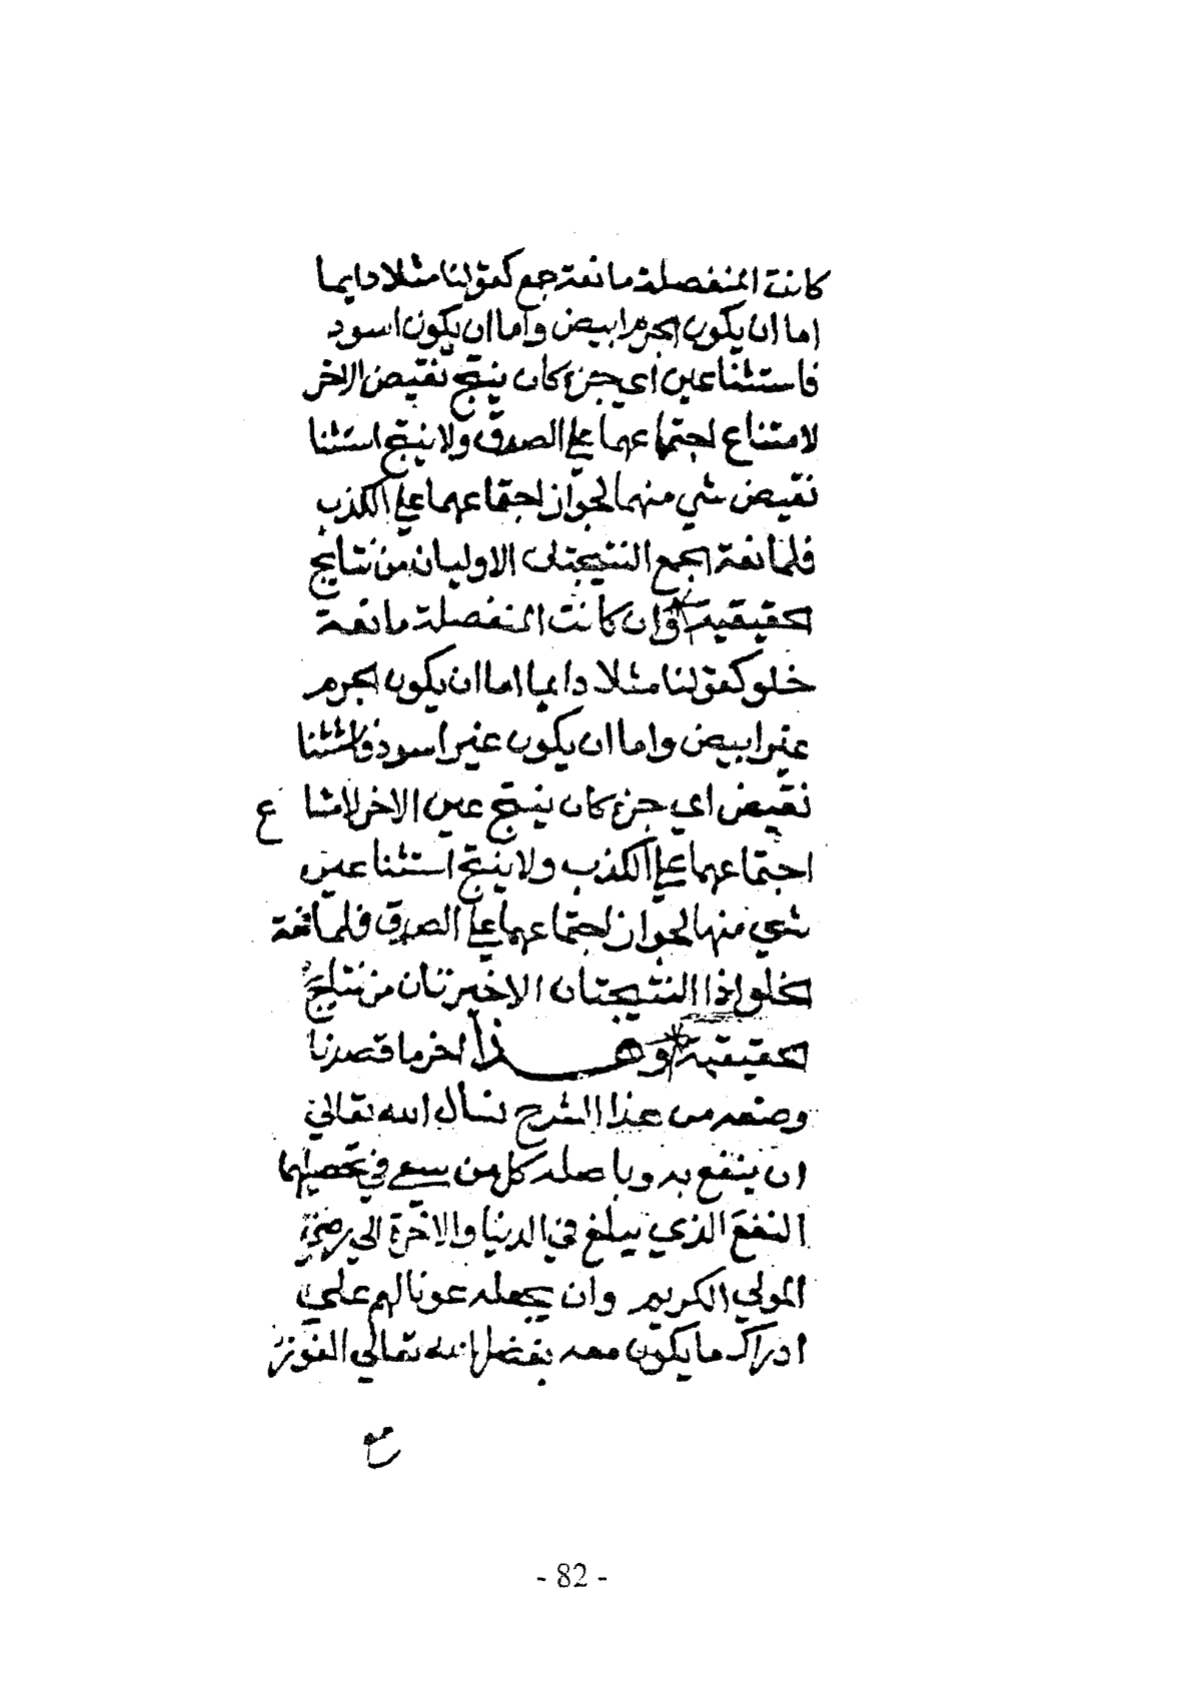 كانت المنفصلة مانعة جمع كقولنا مثلا دايما
اما ان يكون الجرم ابيض واما ان يكون اسود
فاستثنا عين اي جزء كان ينتج نقيض الاخر
لامتناع اجتماعهما علي الصدق ولا ينتج استثنا
نقيض شي منهما لجواز اجتماعهما علي الكذب
فلمانعة الجمع النتيجتان الاوليان من نتايج
الحقيقية وان كانت المنفصلة مانعة
خلو كقولنا مثلا دايما اما ان يكون الجرم
غير ابيض واما ان يكون غير اسود فاستثنا
نقيض اي جزء كان ينتج عين الاخر لامتناع
اجتماعهما علي الكذب ولا ينتج استثنا عين
شي منهما لجواز اجتماعهما علي الصدق فلمانعة
الخلو اذا النتيجتان الاخيرتان من نتايج
الحقيقية وهذا اخر ما قصدنا
وضعه من هذا الشرح نسأل الله تعالي
ان ينفع به وباصله كل من سعي في تحصيلهما
النفع الذي يبلغ في الدنيا والاخرة الي رضي
المولي الكريم وان يجعله عونا لهم علي
ادراك ما يكون معه بفضل الله تعالي الفوز
- 82 -